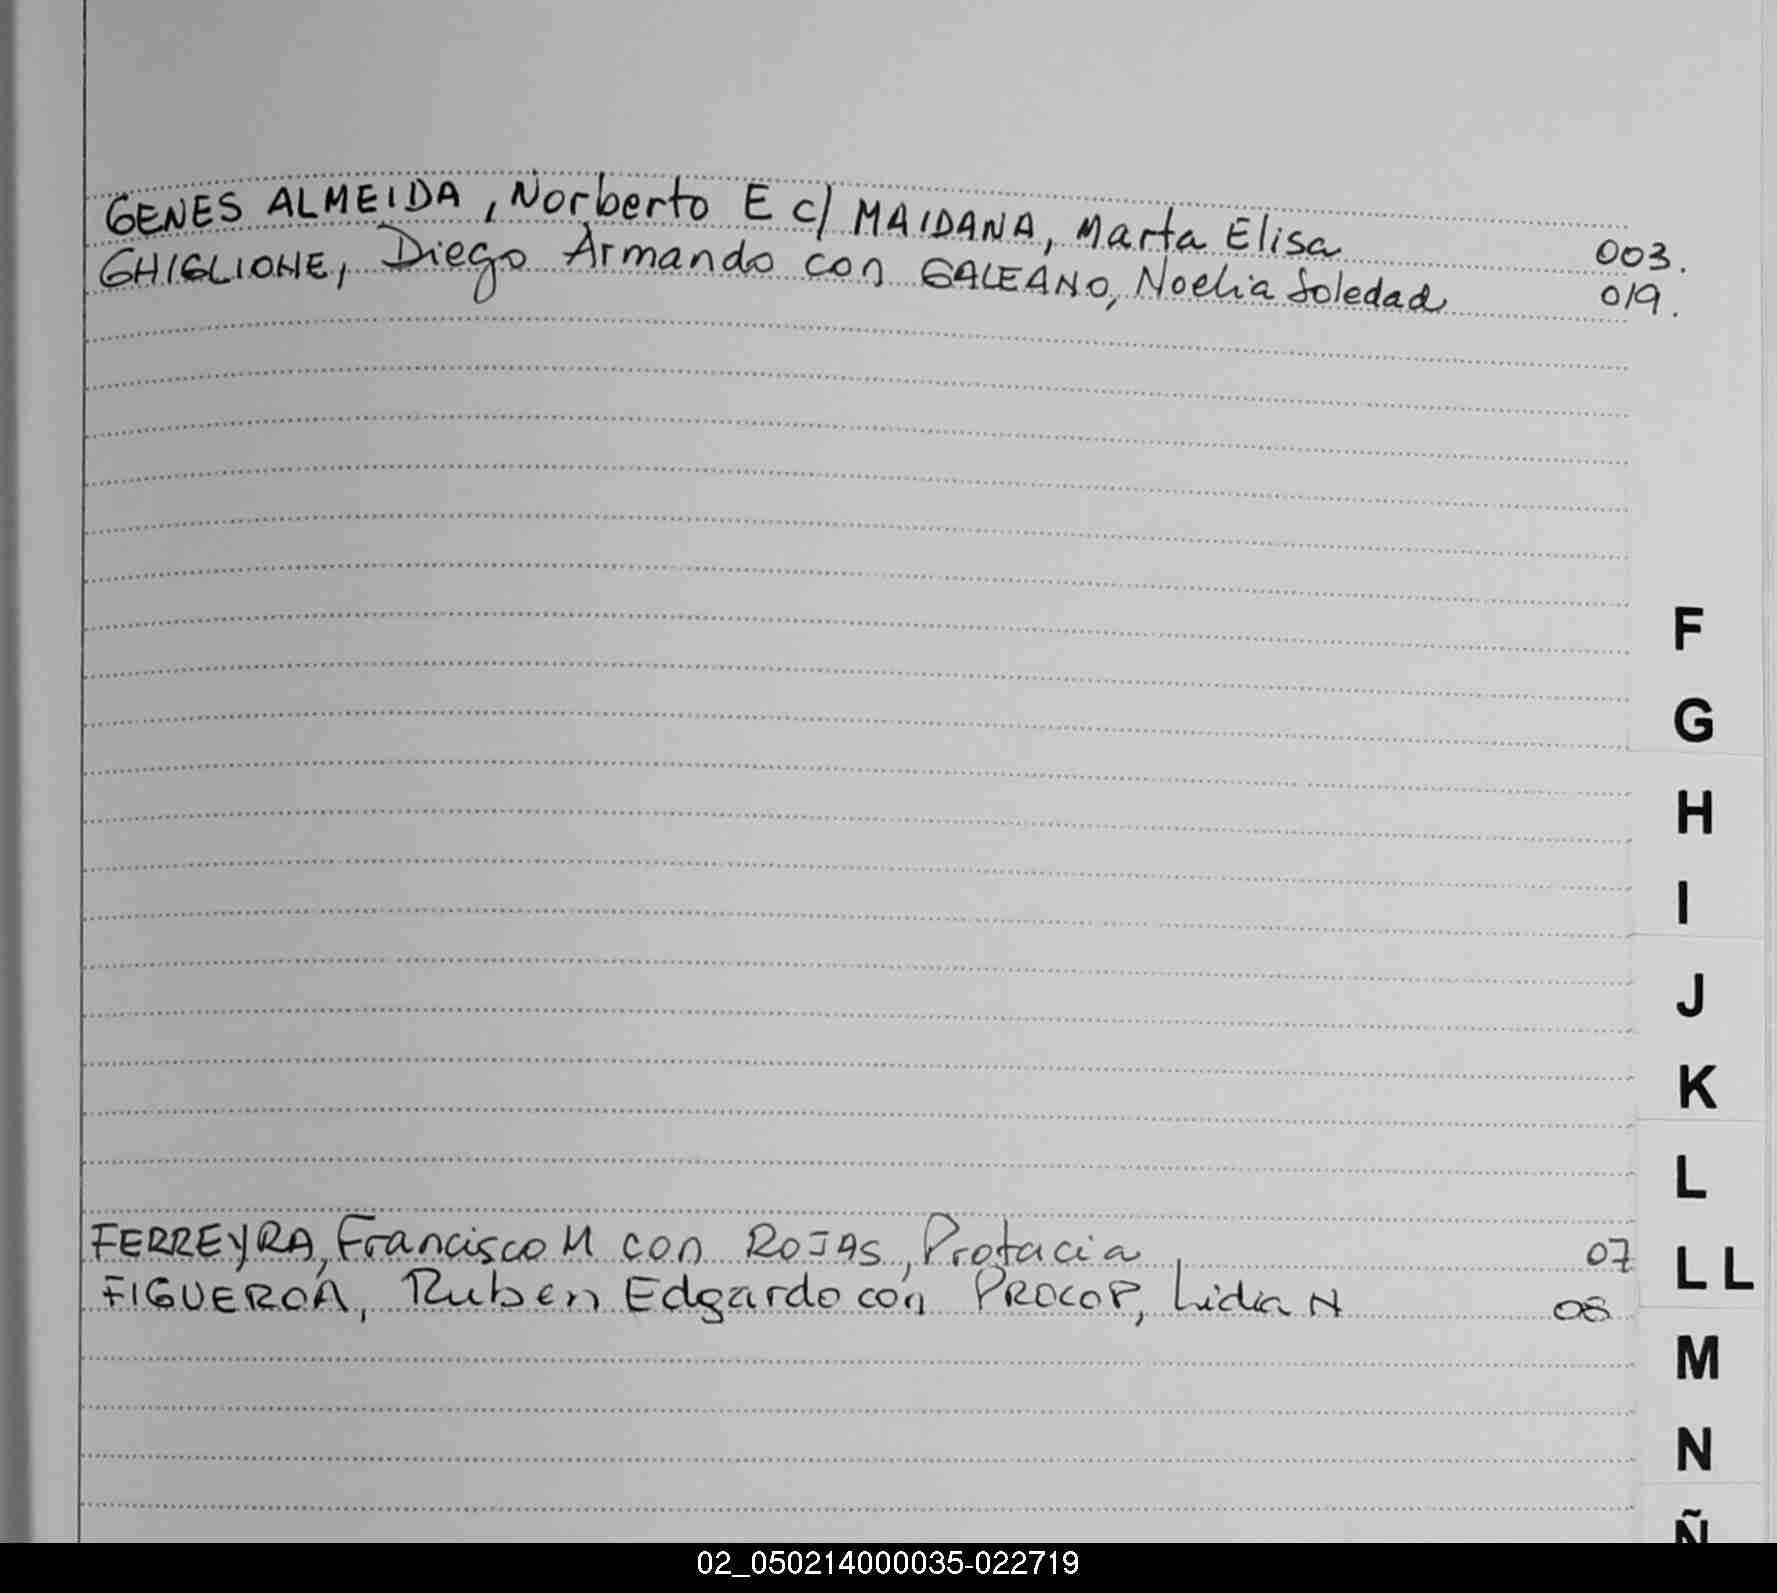 GENES ALMEIDA, Norberto E c/ MAIDANA, Marta Elisa 003.
GHIGLIONE, Diego Armando con GALEANO, Noelia Soledad 019.
F
G
H
I
J
K
L
FERREYRA, Francisco M con ROJAS, Protacia 07
LL
FIGUEROA, Ruben Edgardo con PROCOP, Lidia N 08
M
N
Ñ
02_050214000035-022719